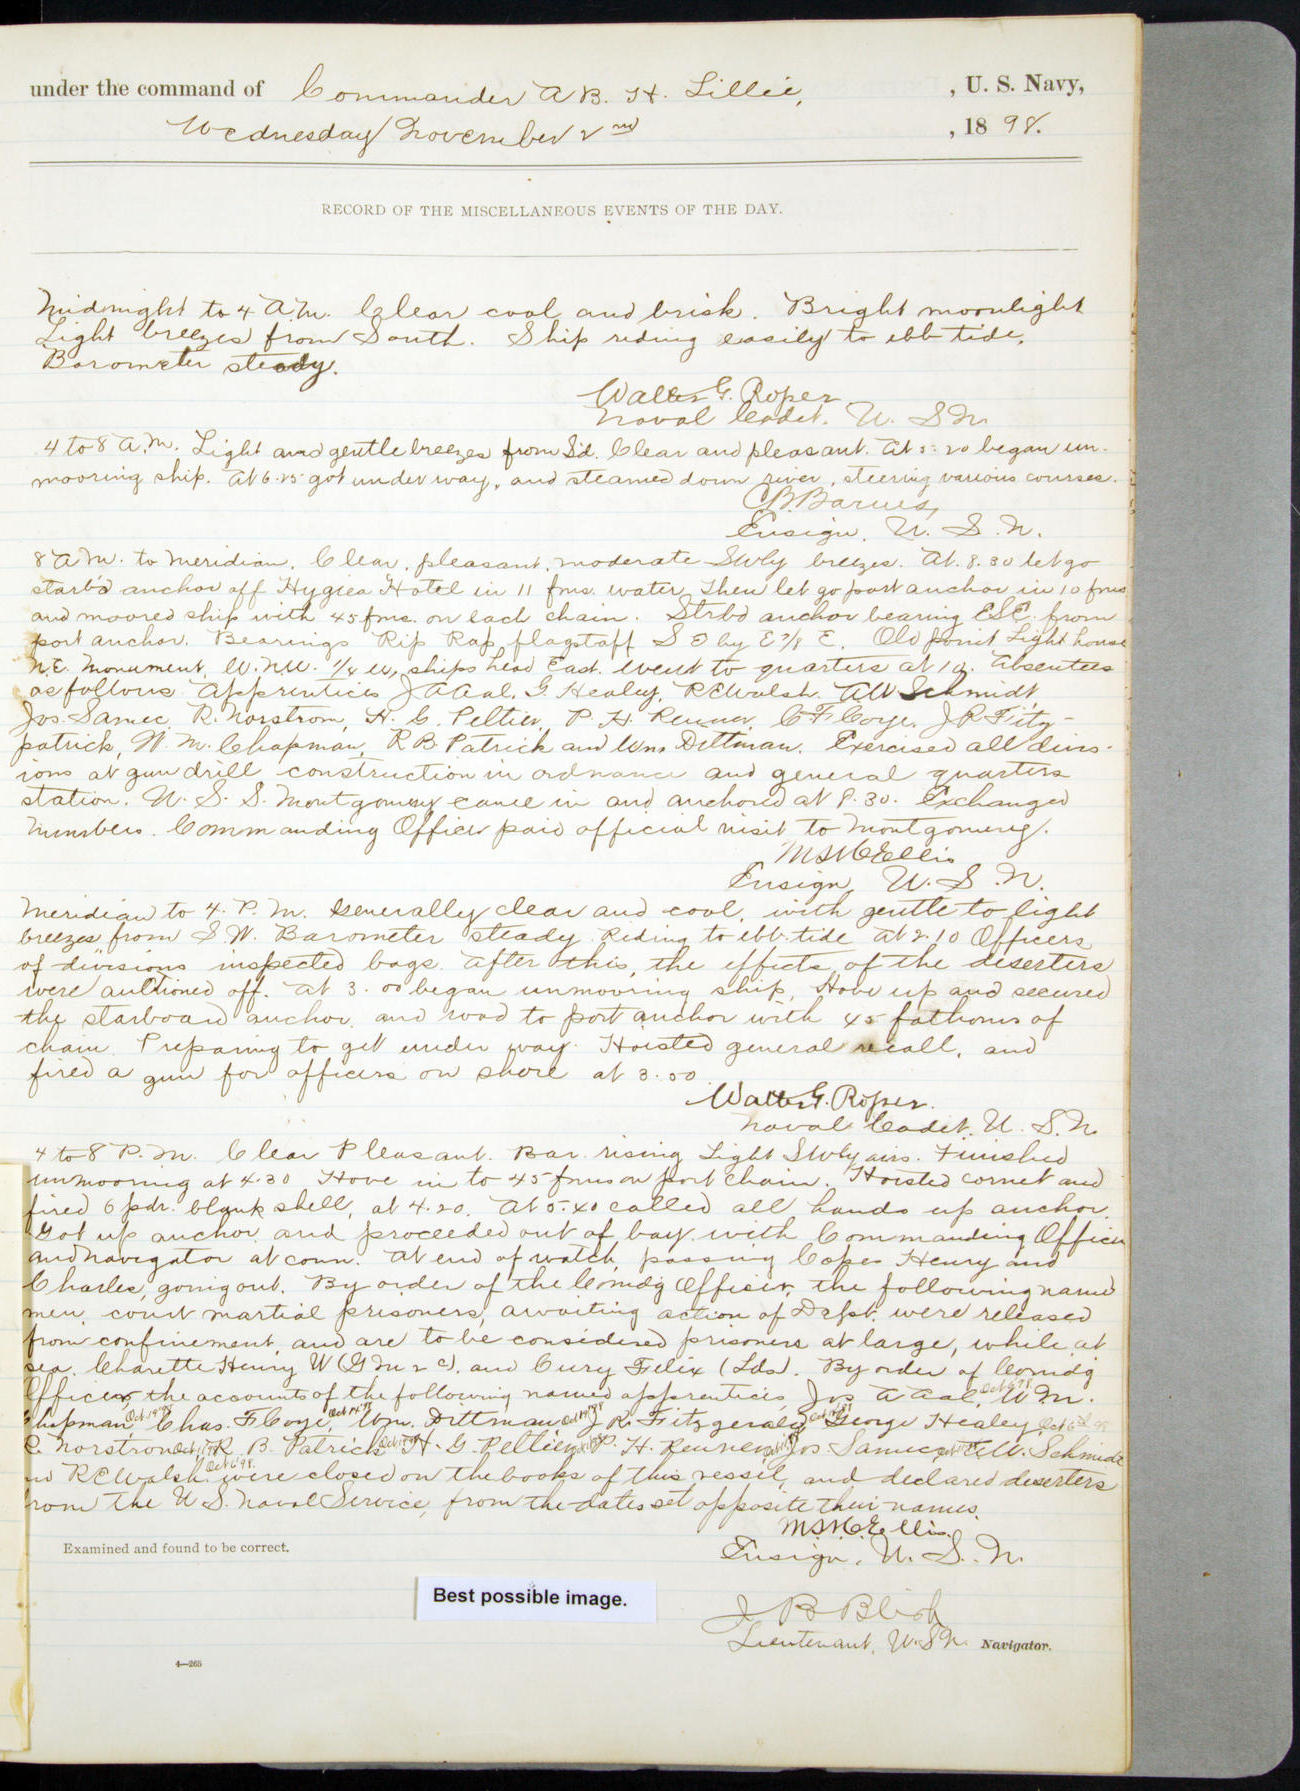 under the command of Commander A B. H. Lillie, , U. S. Navy,
Wednesday November 2nd , 1898.
RECORD OF THE MISCELLANEOUS EVENTS OF THE DAY.
Midnight to 4 A.M. Clear cool and brisk. Bright moonlight
Light breezes from South. Ship riding easily to ebb tide.
Barometer steady.
Walter G. Roper
Naval Cadet. U. S. N.
4 to 8 A.M. Light and gentle breezes from S'd. Clear and pleasant. At 5:20 began un-
mooring ship. At 6.25 got under way, and steamed down river, steering various courses.
C B Barnes,
Ensign, U. S. N.
8 A M. to Meridian. Clear, pleasant, moderate SWly breezes. At 8.30 let go
starb'd anchor off Hygiea Hotel in 11 fms. water, then let go port anchor in 10 fms
and moored ship with 45 fms. on each chain. Strbd anchor bearing ESE. from
port anchor. Bearings Rip Rap flagstaff S by E 7/8 E. Old point Light house
N.E. Monument, W.N.W. 1/4 W, ships head East. Went to quarters at 10. Absentees
as follows Apprentices J A Aal. G. Healey, R E Walsh. AW Schmidt,
Jos. Samec, R. Norstrom, H. G. Peltier, P. H. Renner, C F Coye, J R Fitz-
patrick, W. M. Chapman, R B Patrick and Wm Dittman. Exercised all divis-
ions at gun drill construction in ordnance and general quarters
station. U. S. S. Montgomery came in and anchored at 9.30. Exchanged
Numbers. Commanding Officer paid official visit to Montgomery.
M S Ellis
Ensign, U. S. N.
Meridian to 4. P. M. Generally clear and cool, with gentle to light
breezes from S W. Barometer steady. Riding to ebb tide At 2.10 Officers
of divisions inspected bags. After this, the effects of the deserters
were auctioned off. At 3.00 began unmooring ship. Hove up and secured
the starboard anchor, and rode to port anchor with 45 fathoms of
chain. Preparing to get under way. Hoisted general recall, and
fired a gun for officers on shore at 3.50.
Walter G. Roper.
Naval Cadet. U. S. N.
4 to 8 P. M. Clear Pleasant. Bar. rising Light SWly airs. Finished
unmooring at 4.30 Hove in to 45 fms on port chain. Hoisted cornet and
fired 6 pdr. blank shell, at 4.20. At 5.40 called all hands up anchor.
Got up anchor, and proceeded out of bay, with Commanding Officer
and navigator at conn. At end of watch, passing Capes Henry and
Charles, going out. By order of the Comdg Officer, the following named
men, court martial prisoners, awaiting action of Dept. were released
from confinement, and are to be considered prisoners at large, while at
sea. Charette Henry W (G M 2 c). and Cury Felix (Lds). By order of Comdg
Officer, the accounts of the following named apprentices, Jos A Aal, Oct 6 98, W. M.
Chapman, Chas. F Coye, Wm. Dittman, J. R. Fitzgerald, George Healey,
R. Norstrom, R. B. Patrick, H. G. Peltier, P. H. Renner, Jos Samec, AW. Schmidt
R E Walsh were closed on the books of this vessel, and declared deserters
from the U S. Naval Service, from the dates set opposite their names.
M S Ellis.
Ensign, U. S. N.
Examined and found to be correct.
Best possible image.
J B Blish
Lieutenant, U. S. N. Navigator.
4—265